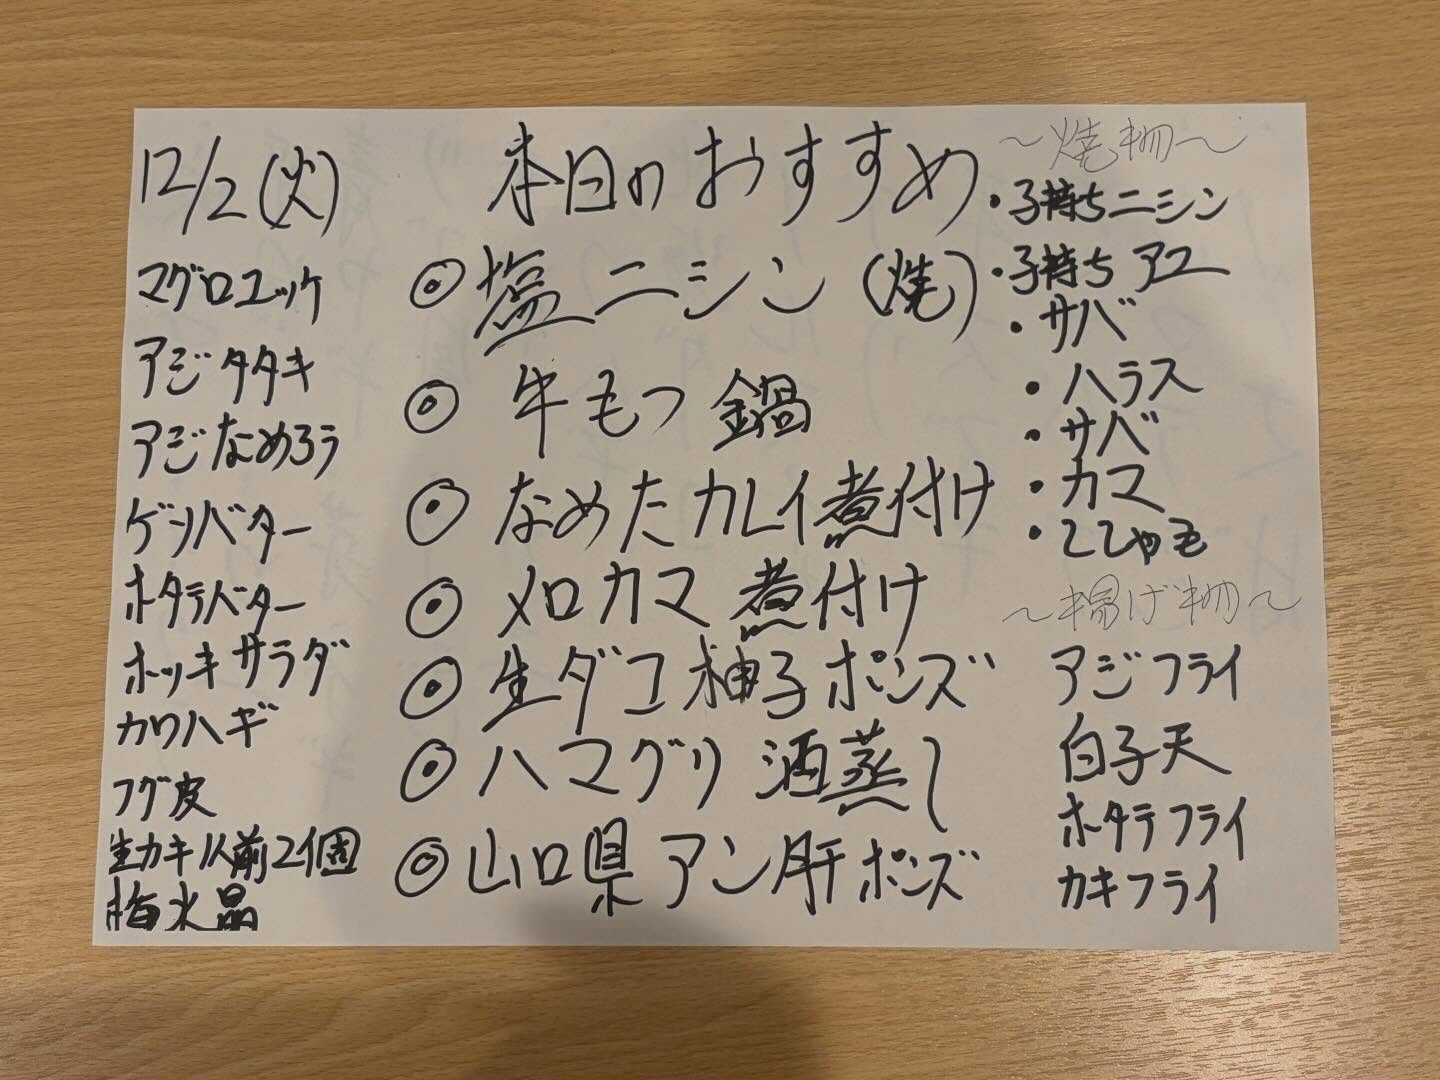 12/2(火)
マグロユッケ
アジタタキ
アジなめろう
ゲソバター
ホタテバター
ホッキサラダ
カワハギ
フグ皮
生カキ1人前2個
梅水晶
本日のおすすめ
◎塩ニシン(焼)
◎牛もつ鍋
◎なめたカレイ煮付け
◎メロカマ煮付け
◎生ダコ柚子ポンズ
◎ハマグリ酒蒸し
◎山口県アン肝ポンズ
～焼物～
・子持ちニシン
・子持ちアユ
・サバ
・ハラス
・サバ
・カマ
・ししゃも
～揚げ物～
アジフライ
白子天
ホタテフライ
カキフライ